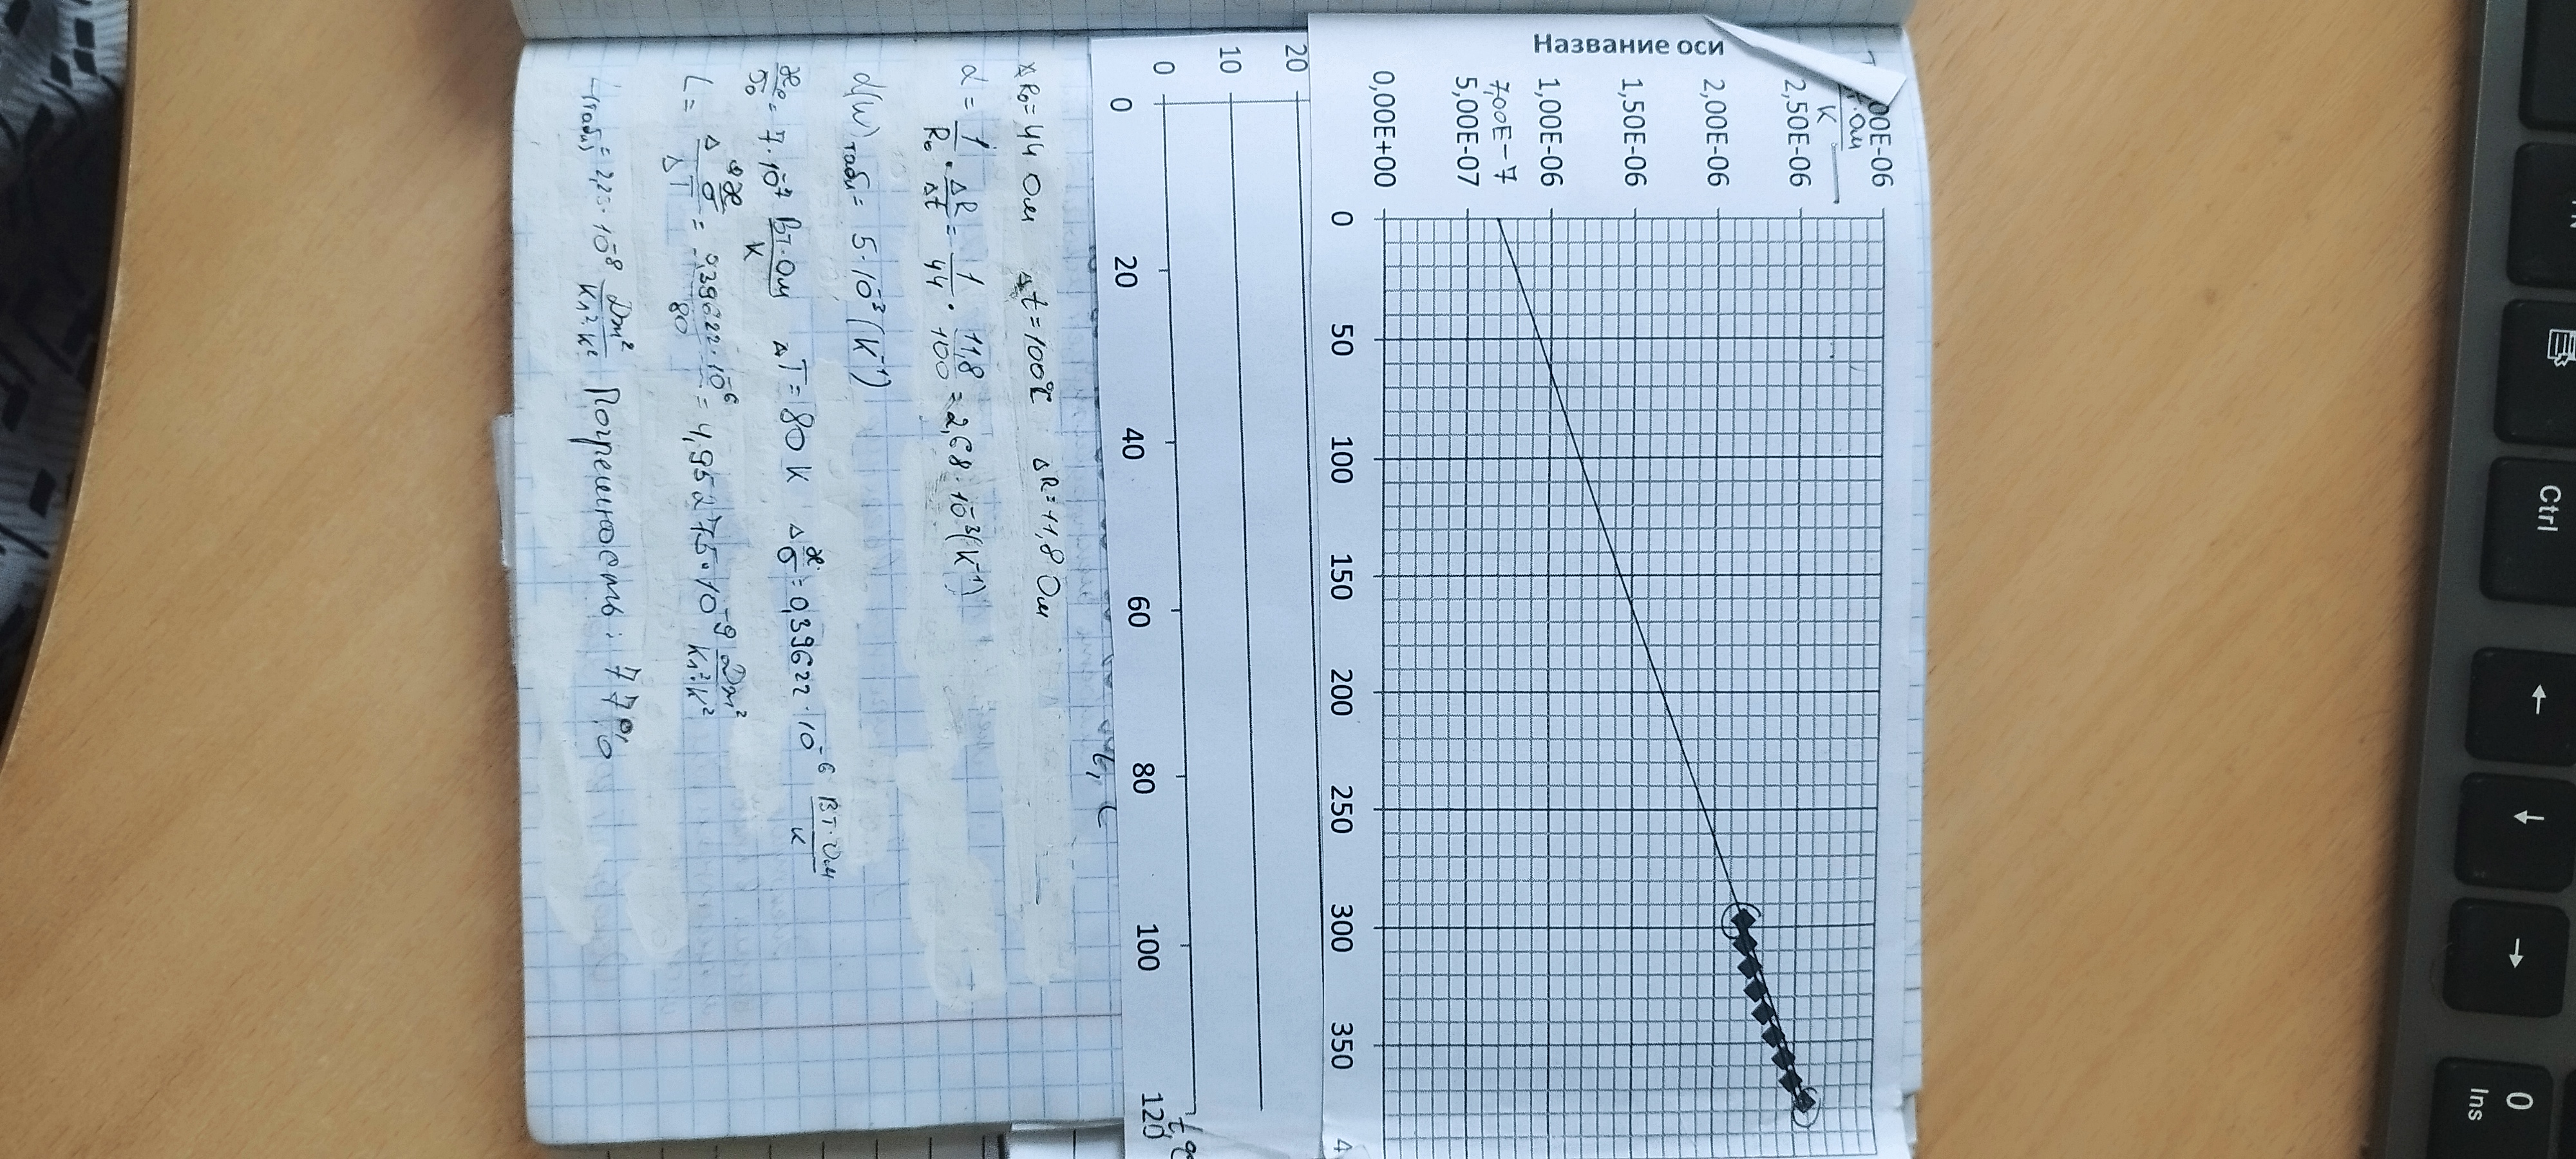 Название оси
00E-06
Вт·Ом
К
2,50E-06
2,00E-06
1,50E-06
1,00E-06
7,00E-7
5,00E-07
0,00E+00
0 50 100 150 200 250 300 350 4
20
10
0
0 20 40 60 80 100 120
t, C
R₀ = 44 Ом Δt = 100°C ΔR = 11,8 Ом
α = 1/R₀ · ΔR/Δt = 1/44 · 11,8/100 = 2,68·10⁻³ (K⁻¹)
α(W)табл = 5·10⁻³ (K⁻¹)
æ₀/σ₀ = 7·10⁻⁷ Вт·Ом/К ΔT = 80 K Δ æ/σ = 0,39622·10⁻⁶ Вт·Ом/К
L = Δ æ/σ / ΔT = 0,39622·10⁻⁶/80 = 4,95275·10⁻⁹ Дж²/Кл²·К²
Lтабл = 2,23·10⁻⁸ Дж²/Кл²·К² Погрешность: 77%
Ctrl
0
Ins